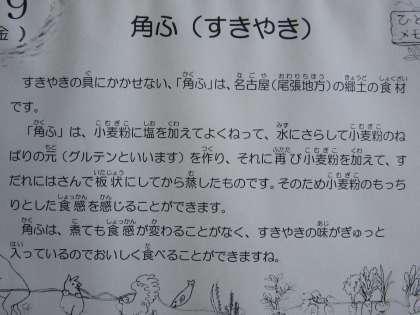 9
金）
角ふ（すきやき）
メモ
すきやきの具にかかせない、「角ふ」は、名古屋（尾張地方）の郷土の食材
です。
「角ふ」は、小麦粉に塩を加えてよくねって、水にさらして小麦粉のね
ばりの元（グルテンといいます）を作り、それに再び小麦粉を加えて、す
だれにはさんで板状にしてから蒸したものです。そのため小麦粉のもっち
りとした食感を感じることができます。
角ふは、煮ても食感が変わることがなく、すきやきの味がぎゅっと
入っているのでおいしく食べることができますね。